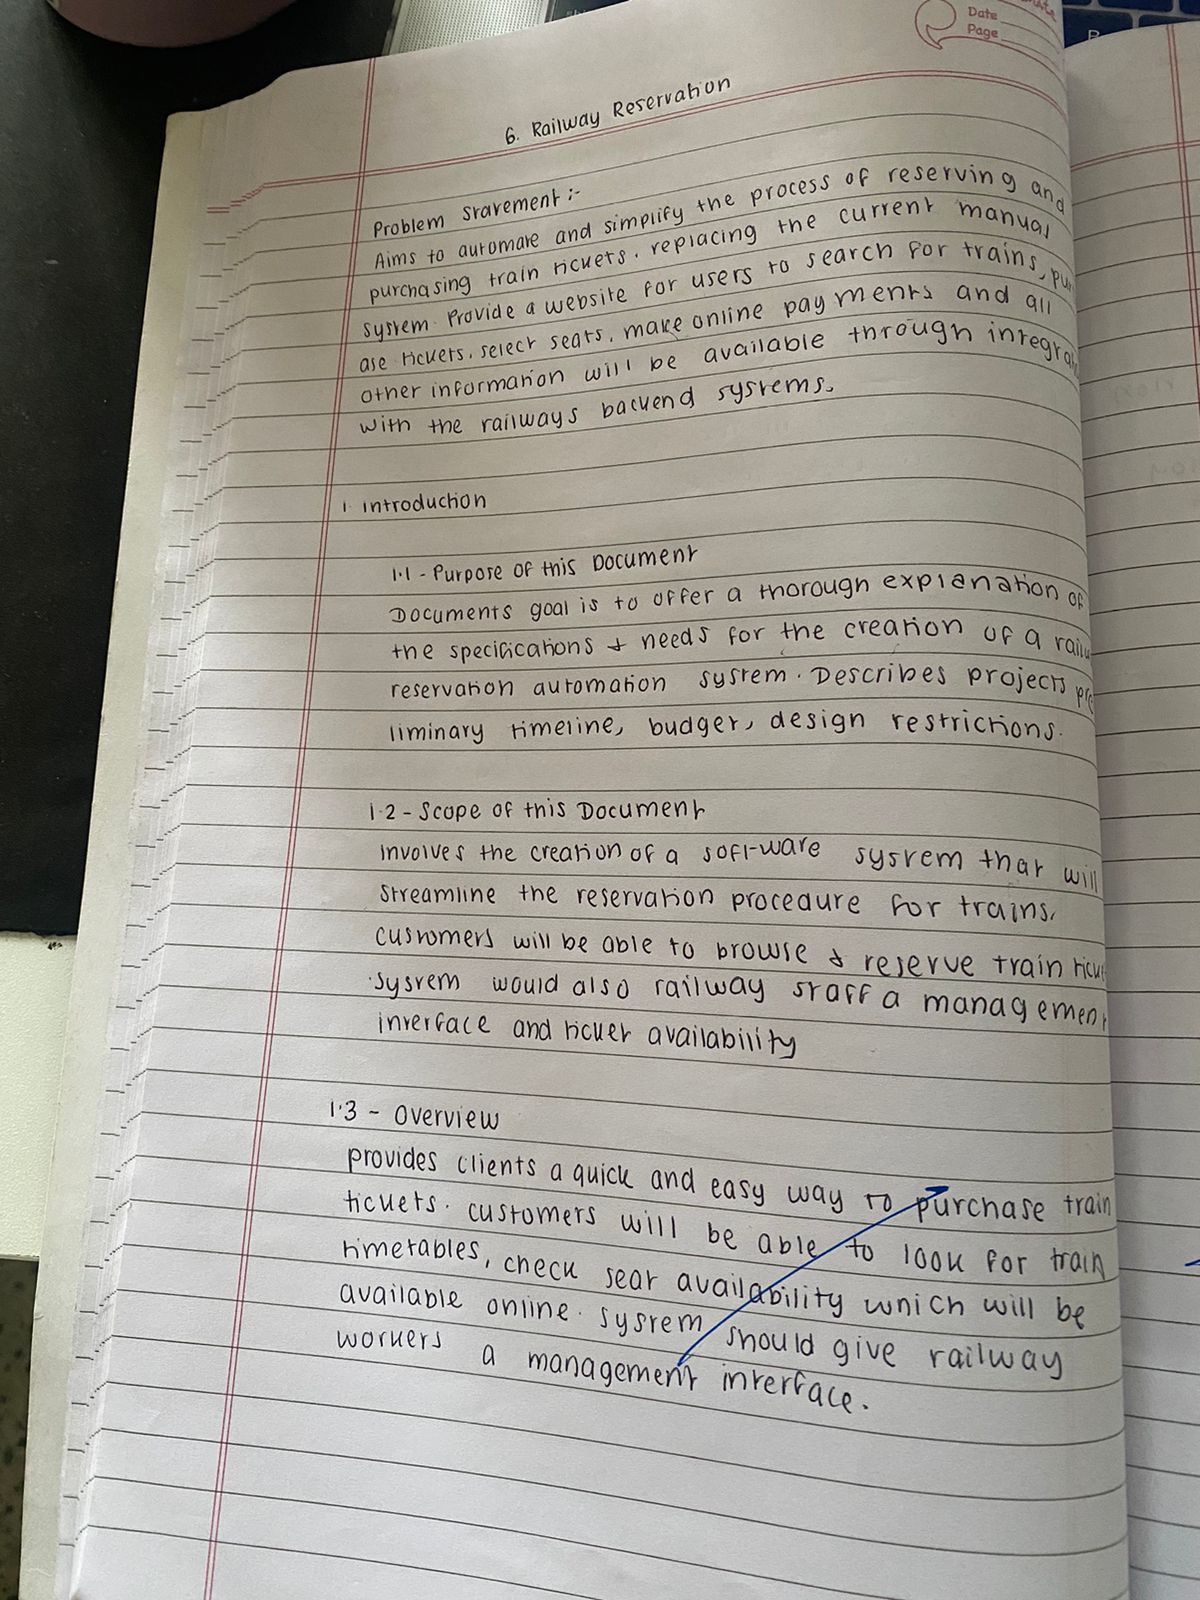 Date
Page
6. Railway Reservation
Problem Statement :-
Aims to automate and simplify the process of reserving and
purchasing train tickets. replacing the current manual
system. Provide a website for users to search for trains,
ase tickets, select seats, make online payments and all
other information will be available through
with the railways backend systems.
1. Introduction
1.1 - Purpose of this Document
Documents goal is to offer a thorough explanation of
the specifications & needs for the creation of a
reservation automation system. Describes projects pre
liminary timeline, budget, design restrictions.
1.2 - Scope of this Document
involves the creation of a soft-ware system that will
streamline the reservation procedure for trains.
customers will be able to browse & reserve train
system would also railway staff a management
interface and ticket availability
1.3 - Overview
provides clients a quick and easy way to purchase train
tickets. customers will be able to look for train
timetables, check seat availability which will be
available online. system should give railway
workers a management interface.